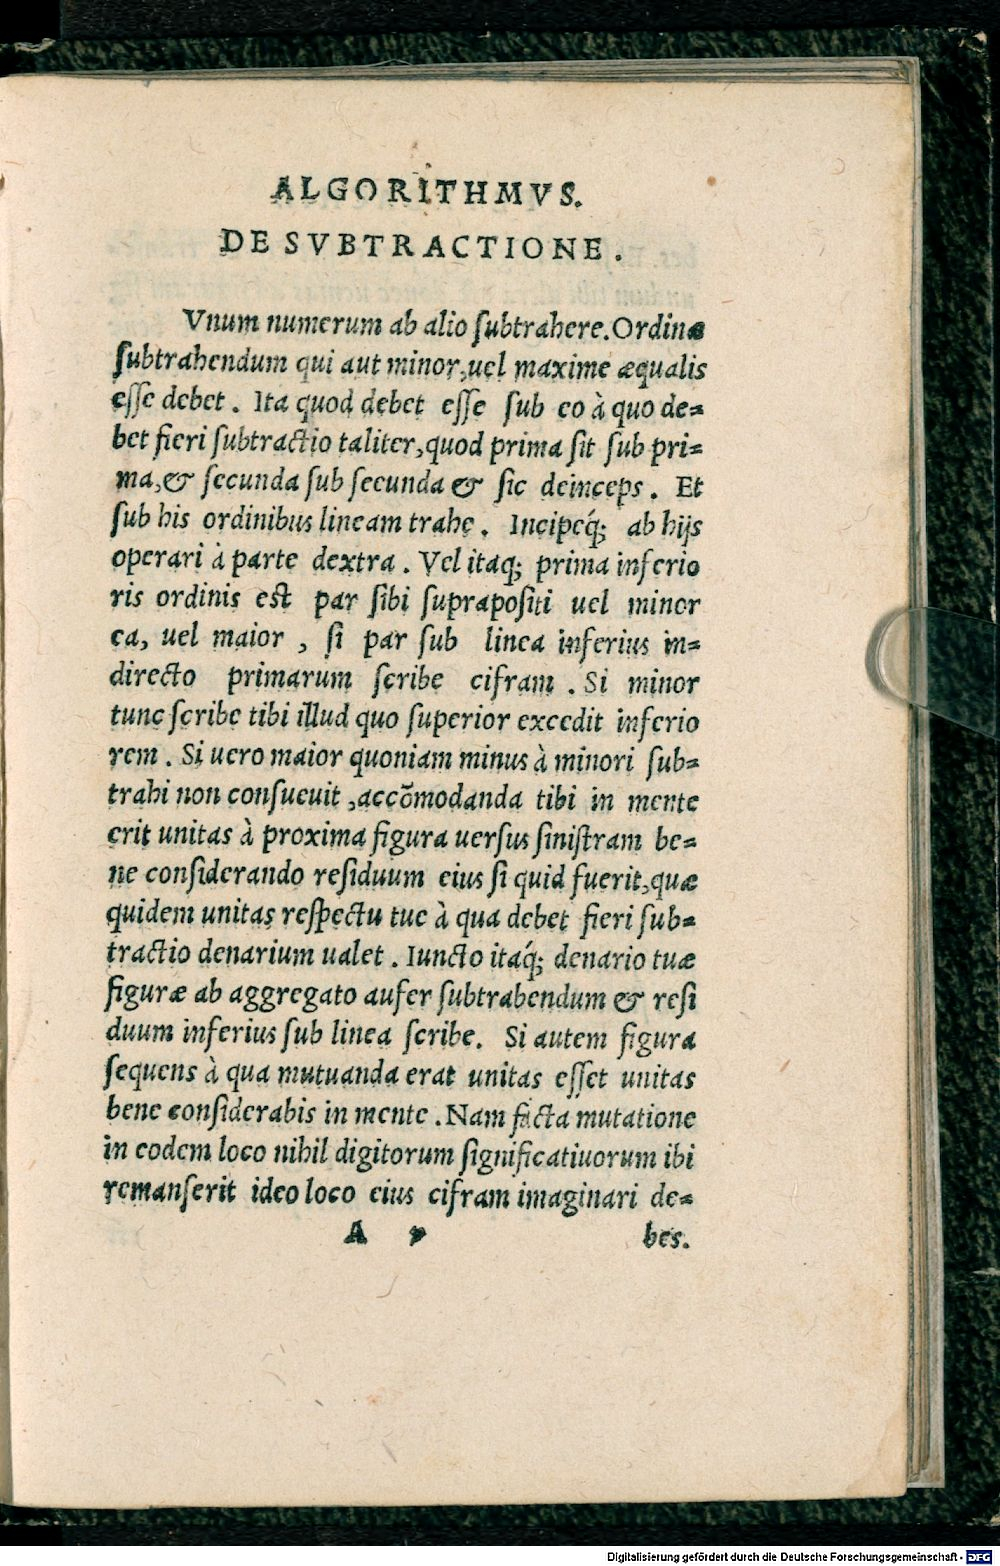 ALGORITHMVS.
DE SVBTRACTIONE.
Vnum numerum ab alio ſubtrahere. Ordinæ
ſubtrahendum qui aut minor, uel maxime æqualis
eſſe debet. Ita quod debet eſſe ſub eo à quo de=
bet fieri ſubtractio taliter, quod prima ſit ſub pri=
ma, & ſecunda ſub ſecunda & ſic deinceps. Et
ſub his ordinibus lineam trahe. Incipeq́; ab hijs
operari à parte dextra. Vel itaq; prima inferio
ris ordinis eſt par ſibi ſuprapoſiti uel minor
ea, uel maior, ſi par ſub linea inferius in=
directo primarum ſcribe cifram. Si minor
tunc ſcribe tibi illud quo ſuperior excedit inferio
rem. Si uero maior quoniam minus à minori ſub=
trahi non conſueuit, accõmodanda tibi in mente
erit unitas à proxima figura uerſus ſiniſtram be=
ne conſiderando reſiduum eius ſi quid fuerit, quæ
quidem unitas reſpectu tue à qua debet fieri ſub=
tractio denarium ualet. Iuncto itaq́; denario tuæ
figuræ ab aggregato aufer ſubtrabendum & reſi
duum inferius ſub linea ſcribe. Si autem figura
ſequens à qua mutuanda erat unitas eſſet unitas
bene conſiderabis in mente. Nam facta mutatione
in eodem loco nihil digitorum ſignificatiuorum ibi
remanſerit ideo loco eius cifram imaginari de=
A v bes.
Digitalisierung gefördert durch die Deutsche Forschungsgemeinschaft - DFG